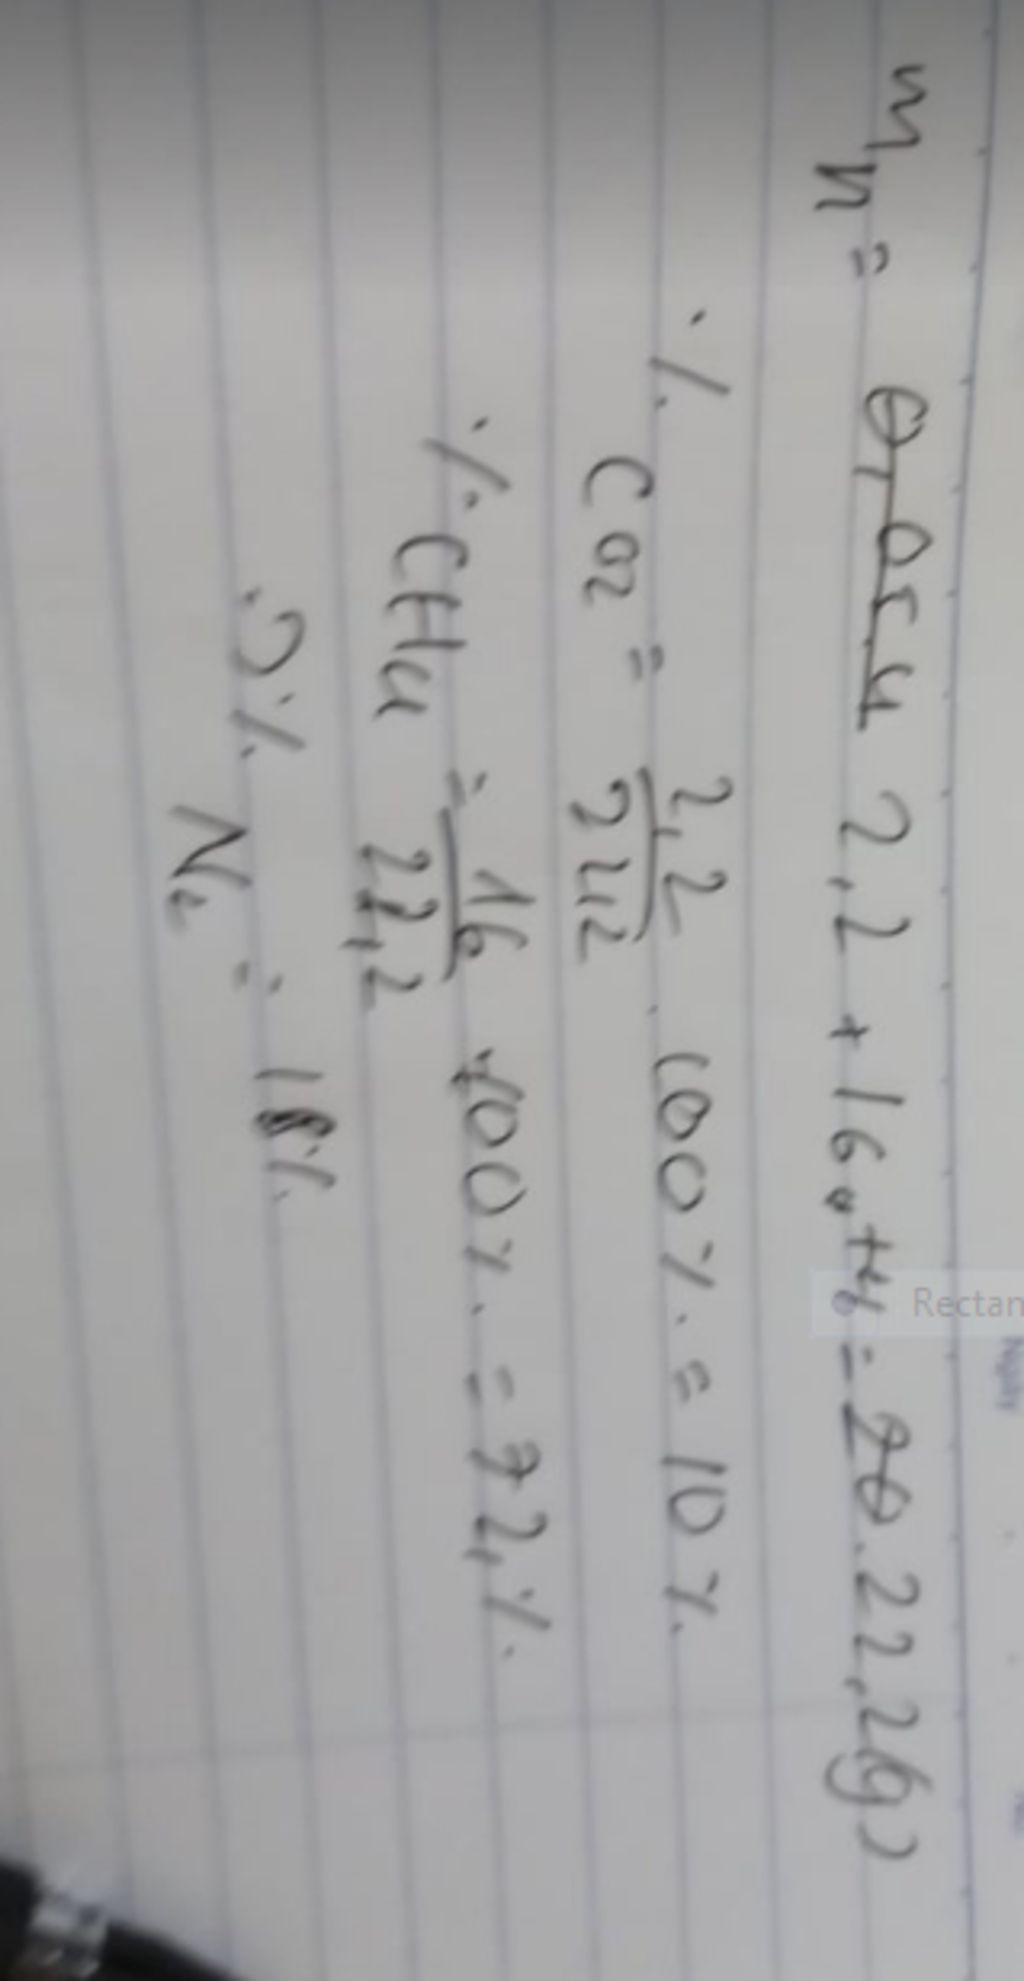 m_h = 2,2 + 16 + 4 = 22,2(g)
% CO2 = 2,2/242 . 100% = 10%
% CH4 = 16/22,2 . 100% = 72,%
=> % N2 = 18%
Rectan